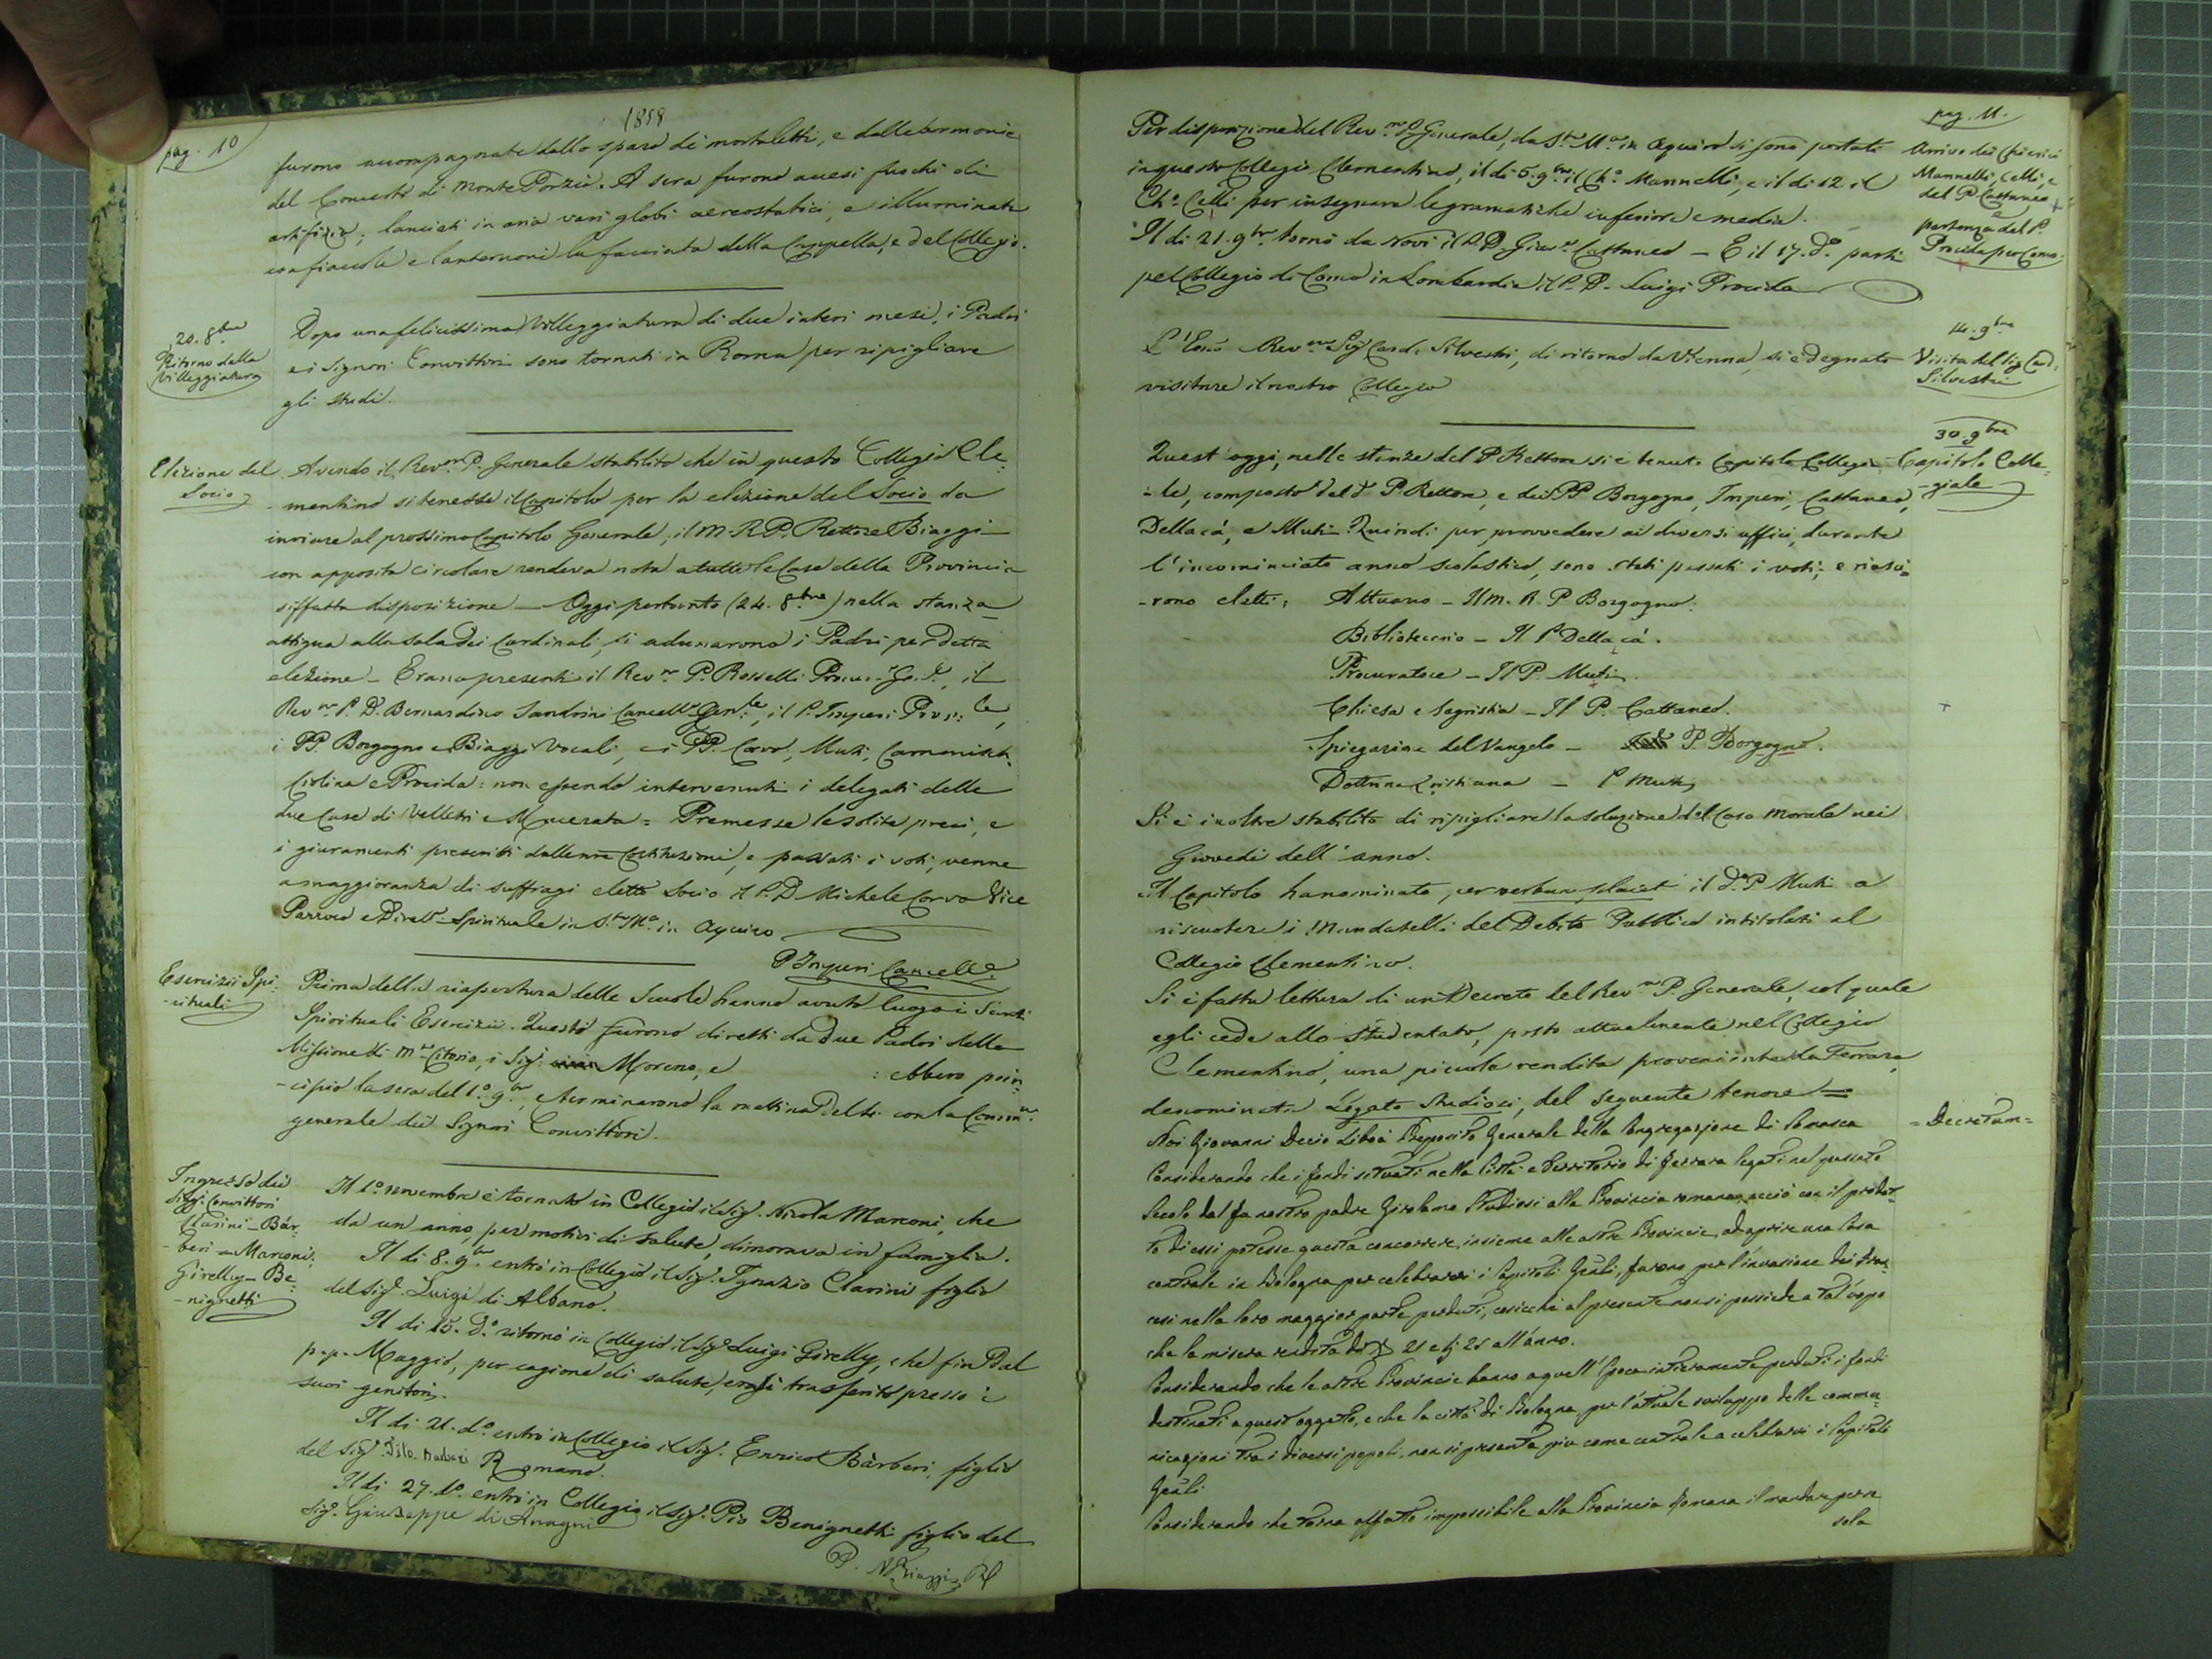 pag. 10
1858
furono accompagnate dallo sparo di mortaletti, e dalle armonie
del Concerto di Monte Porzio. A sera furono accesi fuochi di
artifizio; lanciati in aria vari globi aereostatici, e illuminata
con fiaccole e lanternoni la facciata della Cappella, e del Collegio.
20. 8bre
Ritorno dalla
Villeggiatura
Dopo una felicissima Villeggiatura di due interi mesi, i Padri
e i Signori Convittori sono tornati in Roma per ripigliare
gli studi.
Elezione del
Socio
Avendo il Revmo P. Generale stabilito che in questo Collegio Cle=
mentino si tenesse il Capitolo per la elezione del Socio da
inviare al prossimo Capitolo Generale, il M. R. P. Rettore Biaggi
con apposita circolare rendeva nota a tutte le Case della Provincia
siffatta disposizione — Oggi pertanto (24. 8bre) nella stanza
attigua alla sala dei Cardinali, si adunarono i Padri per detta
elezione — Erano presenti il Revmo P. Rosselli Procur. Gen., il
Revmo P. D. Bernardino Sandrini Cancell. Genle, il P. Imperi Provle,
i PP. Borgogno e Biaggi Vocali, e i PP. Corvo, Muti,
Ciolina e Procida: non essendo intervenuti i delegati delle
due Case di Velletri e Macerata = Premesse le solite preci, e
i giuramenti prescritti dalle nre Costituzioni, e passati i voti, venne
a maggioranza di suffragi eletto Socio il P. D. Michele Corvo Vice
Parroco e Dirett. Spirituale in Sta Ma in Aquiro
P Imperi Cancelle.
Esercizii Spi=
=rituali
Prima della riapertura delle Scuole hanno avuto luogo i Santi
Spirituali Esercizii. Questi furono diretti da due Padri della
Missione di Mte Citorio, i Sigi Moreno, e : ebbero prin=
-cipio la sera del 1o 9bre, e terminarono la mattina del con la Comne
generale dei Signori Convittori.
Ingresso dei
Sigi Convittori
Clarini - Bar=
beri - Marconi,
Girelly - Be=
-nignetti
Il 1o novembre è tornato in Collegio il Sigr. Nicola Marconi, che
da un anno, per motivi di salute, dimorava in famiglia.
Il dì 8. 9bre entrò in Collegio il Sigr. Ignazio Clarini figlio
del Sigr. Luigi di Albano.
Il dì 15. do ritornò in Collegio il Sigr Luigi Girelly, che fin dal
p.p. Maggio, per cagione di salute, erasi trasferito presso i
suoi genitori.
Il dì 21. do entrò in Collegio il Sigr. Enrico Bàrberi, figlio
del Sigr. Barberi Romano.
Il dì 27. do entrò in Collegio il Sigr. Pio Benignetti figlio del
Sigr. Giuseppe di Anagni
P. N Biaggi
pag. 11.
Per disposizione del Revmo P. Generale, da Sta Ma in Aquiro si sono portati
in questo Collegio Clementino, il dì 5. 9bre il Cho. Mannelli, e il dì 12 il
Cho. Celli per insegnare le gramatiche inferiore e media.
Il dì 21. 9bre tornò da Novi il P. D. Cattaneo — E il 17. do. partì
pel Collegio di Como in Lombardia il P. D. Luigi Procida
Arrivo dei Chierici
Mannelli, Celli, e
del P Cattaneo
partenza del P.
Procida per Como.
14. 9bre
Visita del Sig Card.
Silvestri
L'Emo Revmo Sigr Card. Silvestri, di ritorno da Vienna, si è degnato
visitare il nostro Collegio
30. 9bre
Capitolo Colle=
-giale
Quest'oggi, nelle stanze del P. Rettore si è tenuto Capitolo Collegia=
=le, composto del do P. Rettore, e dei PP Borgogno, Imperi, Cattaneo,
Dellacà, e Muti. Quindi per provvedere ai diversi uffici, durante
l'incominciato anno scolastico, sono stati passati i voti; e riusci=
-rono eletti: Attuario — Il M. R. P Borgogno.
Bibliotecario — Il P Dellacà.
Procuratore — Il P. Muti.
Chiesa e Sagristia — Il P. Cattaneo.
Spiegazione del Vangelo — P. Borgogno.
Dottrina Cristiana — P Muti
Si è inoltre stabilito di ripigliare la soluzione del Caso Morale nei
Giovedì dell'anno.
Il Capitolo ha nominato, per verbum placet il do P Muti a
riscuotere i Mandatelli del Debito Pubblico intitolati al
Collegio Clementino.
Si è fatta lettura di un Decreto del Revmo P. Generale, col quale
egli cede allo Studentato, posto attualmente nel Collegio
Clementino, una piccola rendita proveniente da Ferrara,
denominata Legato Studiosi, del seguente tenore =
= Decretum =
Noi Giovanni Decio Libois Preposito Generale della Congregazione di Somasca
Considerando che i fondi situati nella Città e Territorio di Ferrara legati nel passato
Secolo dal fu nostro padre Girolamo Studiosi alla Provincia romana, acciò con il prodot=
to di essi potesse questa concorrere, insieme alle altre Provincie, ad aprire una Casa
centrale in Bologna per celebrarvi i Capitoli Genli, furono per l'invasione dei Fran=
cesi nella loro maggior parte perduti, cosicchè al presente non si possiede a tal uopo
che la misera rendita di 21 e bj 21 all'anno.
Considerando che le altre Provincie hanno a quell'epoca interamente perduti i fondi
destinati a quest'oggetto, e che la città di Bologna per l'attuale sviluppo delle commu=
nicazioni tra i diversi popoli, non si presenta più come centrale a celebrarvi i Capitoli
Genli
Considerando che torna affatto impossibile alla Provincia Romana il mandare per se
sola